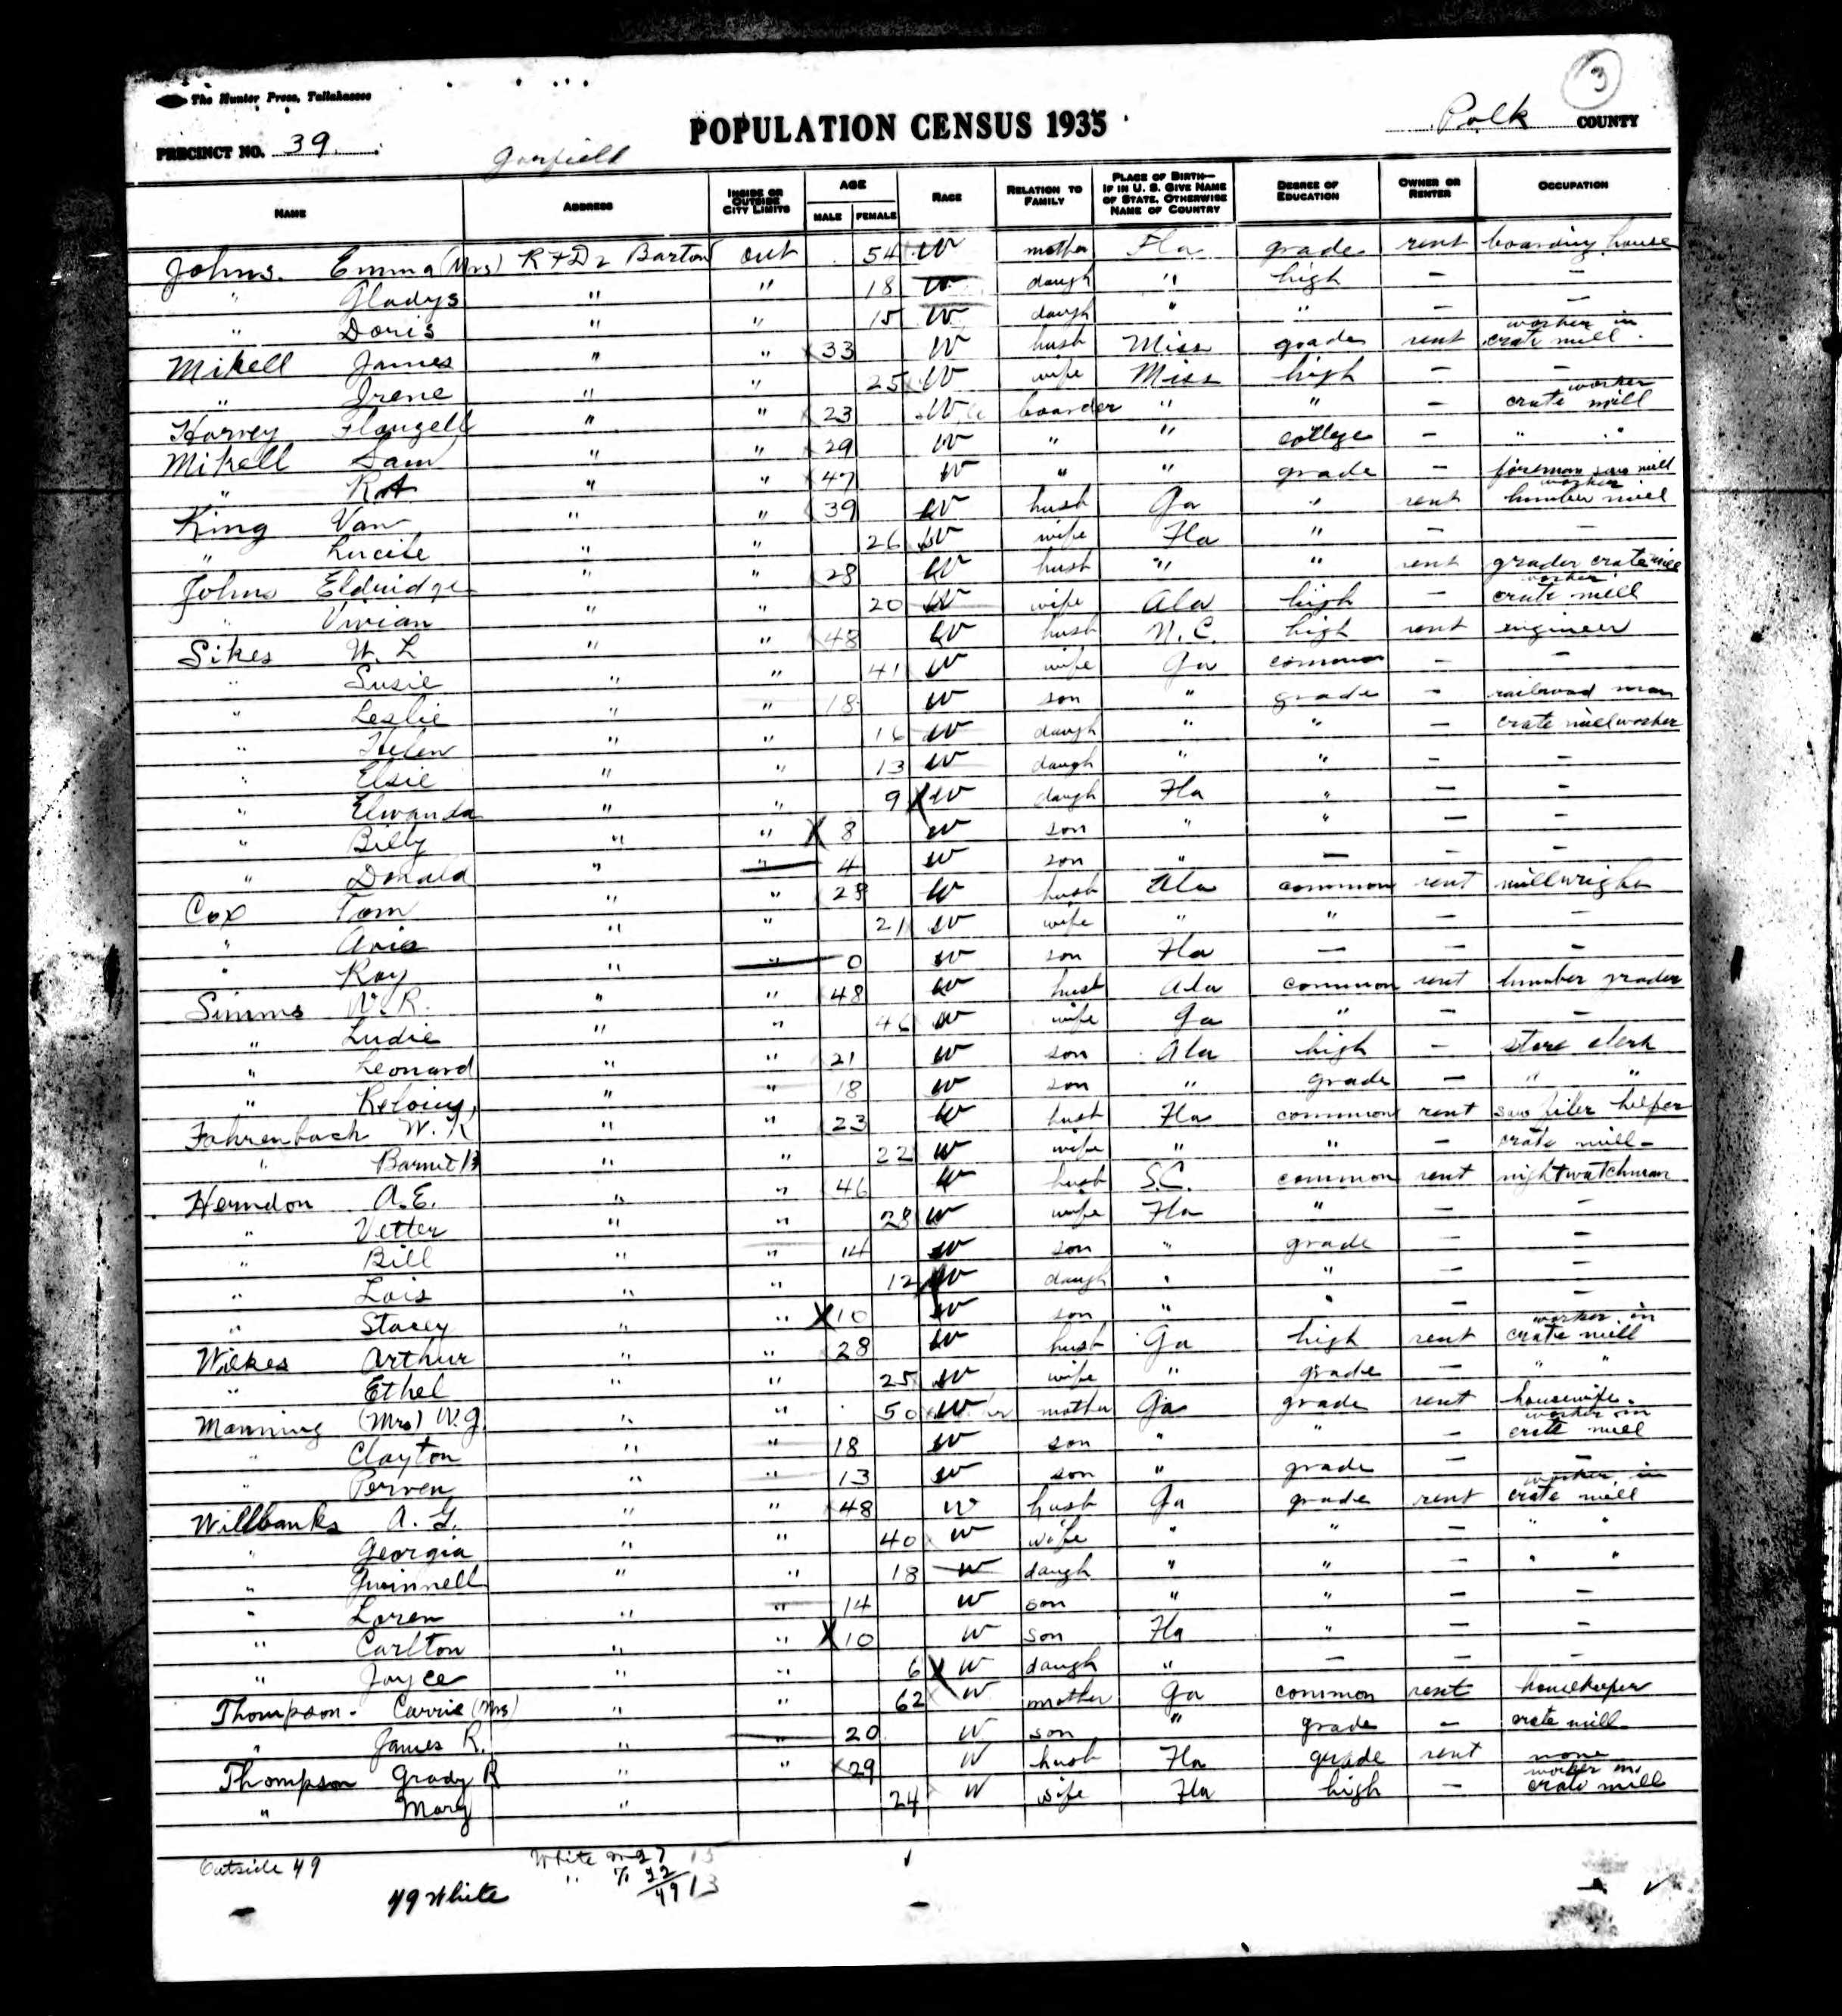 The Hunter Press, Tallahassee
3
POPULATION CENSUS 1935
Polk COUNTY
PRECINCT NO. 39
Garfield
NAME ADDRESS INSIDE OR OUTSIDE CITY LIMITS AGE MALE FEMALE RACE RELATION TO FAMILY PLACE OF BIRTH—IF IN U. S. GIVE NAME OF STATE, OTHERWISE NAME OF COUNTRY DEGREE OF EDUCATION OWNER OR RENTER OCCUPATION
Johns. Emma (Mrs) RFD2 Bartow out 54 W mother Fla grade rent boarding house
" Gladys " " 18 W daugh " high - -
" Doris " " 15 W daugh " " - -
Mikell James " " 33 W hush Miss grade rent worker in crate mill.
" Irene " " 25 W wife Miss high - -
Harvey " " 23 W boarder " " - worker crate mill
Mikell Sam " " 29 W " " college - " "
" " " 47 W " " grade - foreman saw mill
King Van " " 39 W hush Ga " rent worker lumber mill
" Lucile " " 26 W wife Fla " - -
Johns Eldridge " " 28 W hush " " rent grader crate mill
" Vivian " " 20 W wife Ala high - worker crate mill
Sikes W. L " " 48 W hush N.C. high rent engineer
" Susie " " 41 W wife Ga common - -
" Leslie " " 18 W son " grade - railroad man
" Helen " " 16 W daugh " " - crate millworker
" Elsie " " 13 W daugh " " - -
" Elwanda " " 9 X W daugh Fla " - -
" Billy " " X 8 W son " " - -
" Donald " " 4 W son " - - -
Cox Tom " " 28 W hush Ala common rent millwright
" Avis " " 21 W wife " " - -
" Roy " " 0 W son Fla - - -
Simms W.R. " " 48 W hush Ala common rent lumber grader
" Ludie " " 46 W wife Ga " - -
" Leonard " " 21 W son Ala high - store clerk
" " " 18 W son " grade - " "
Fahrenbach W. R " " 23 W hush Fla common rent saw filer helper
" " " 22 W wife " " - crate mill -
Herndon A.E. " " 46 W hush SC. common rent nightwatchman
" Vetter " " 28 W wife Fla " - -
" Bill " " 14 W son " grade - -
" Lois " " 12 W daugh " " - -
" Stacey " " X 10 W son " " - -
Wilkes Arthur " " 28 W hush Ga high rent worker in crate mill
" Ethel " " 25 W wife " grade - " "
Manning (Mrs) W.J. " " 50 W mother Ga grade rent housewife.
" Clayton " " 18 W son " " - worker in crate mill
" Perven " " 13 W son " grade - -
Willbanks A. G. " " 48 W hush Ga grade rent worker in crate mill
" Georgia " " 40 W wife " " - " "
" Gwinnell " " 18 W daugh " " - " "
" Loren " " 14 W son " " - -
" Carlton " " X 10 W son Fla " - -
" Joyce " " 6 X W daugh " - - -
Thompson. Carrie (Mrs) " " 62 W mother Ga common rent housekeeper
" James R. " " 20 W son " grade - crate mill
Thompson Grady R " " 29 W hush Fla grade rent none
" Mary " 24 W wife Fla high - worker in crate mill
Outside 49
White m 27 13
" 22
49 13
49 White